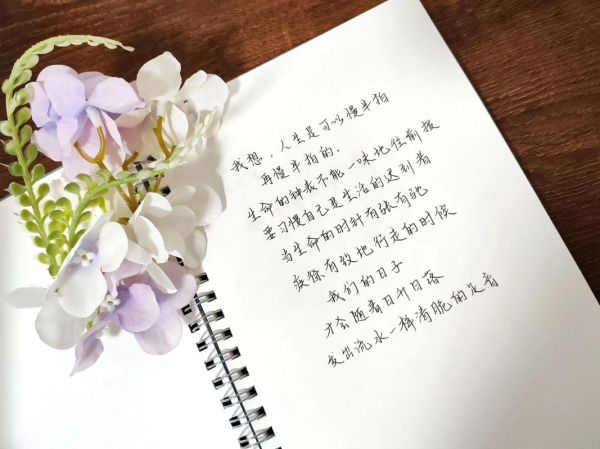 我想，人生是可以慢半拍
再慢半拍的，
生命的钟表不能一味地往前拨
要习惯自己是生活的迟到者
当生命的时针有张有弛
疾徐有致地行走的时候
我们的日子
才会随着日升日落
发出流水一样清脆的足音